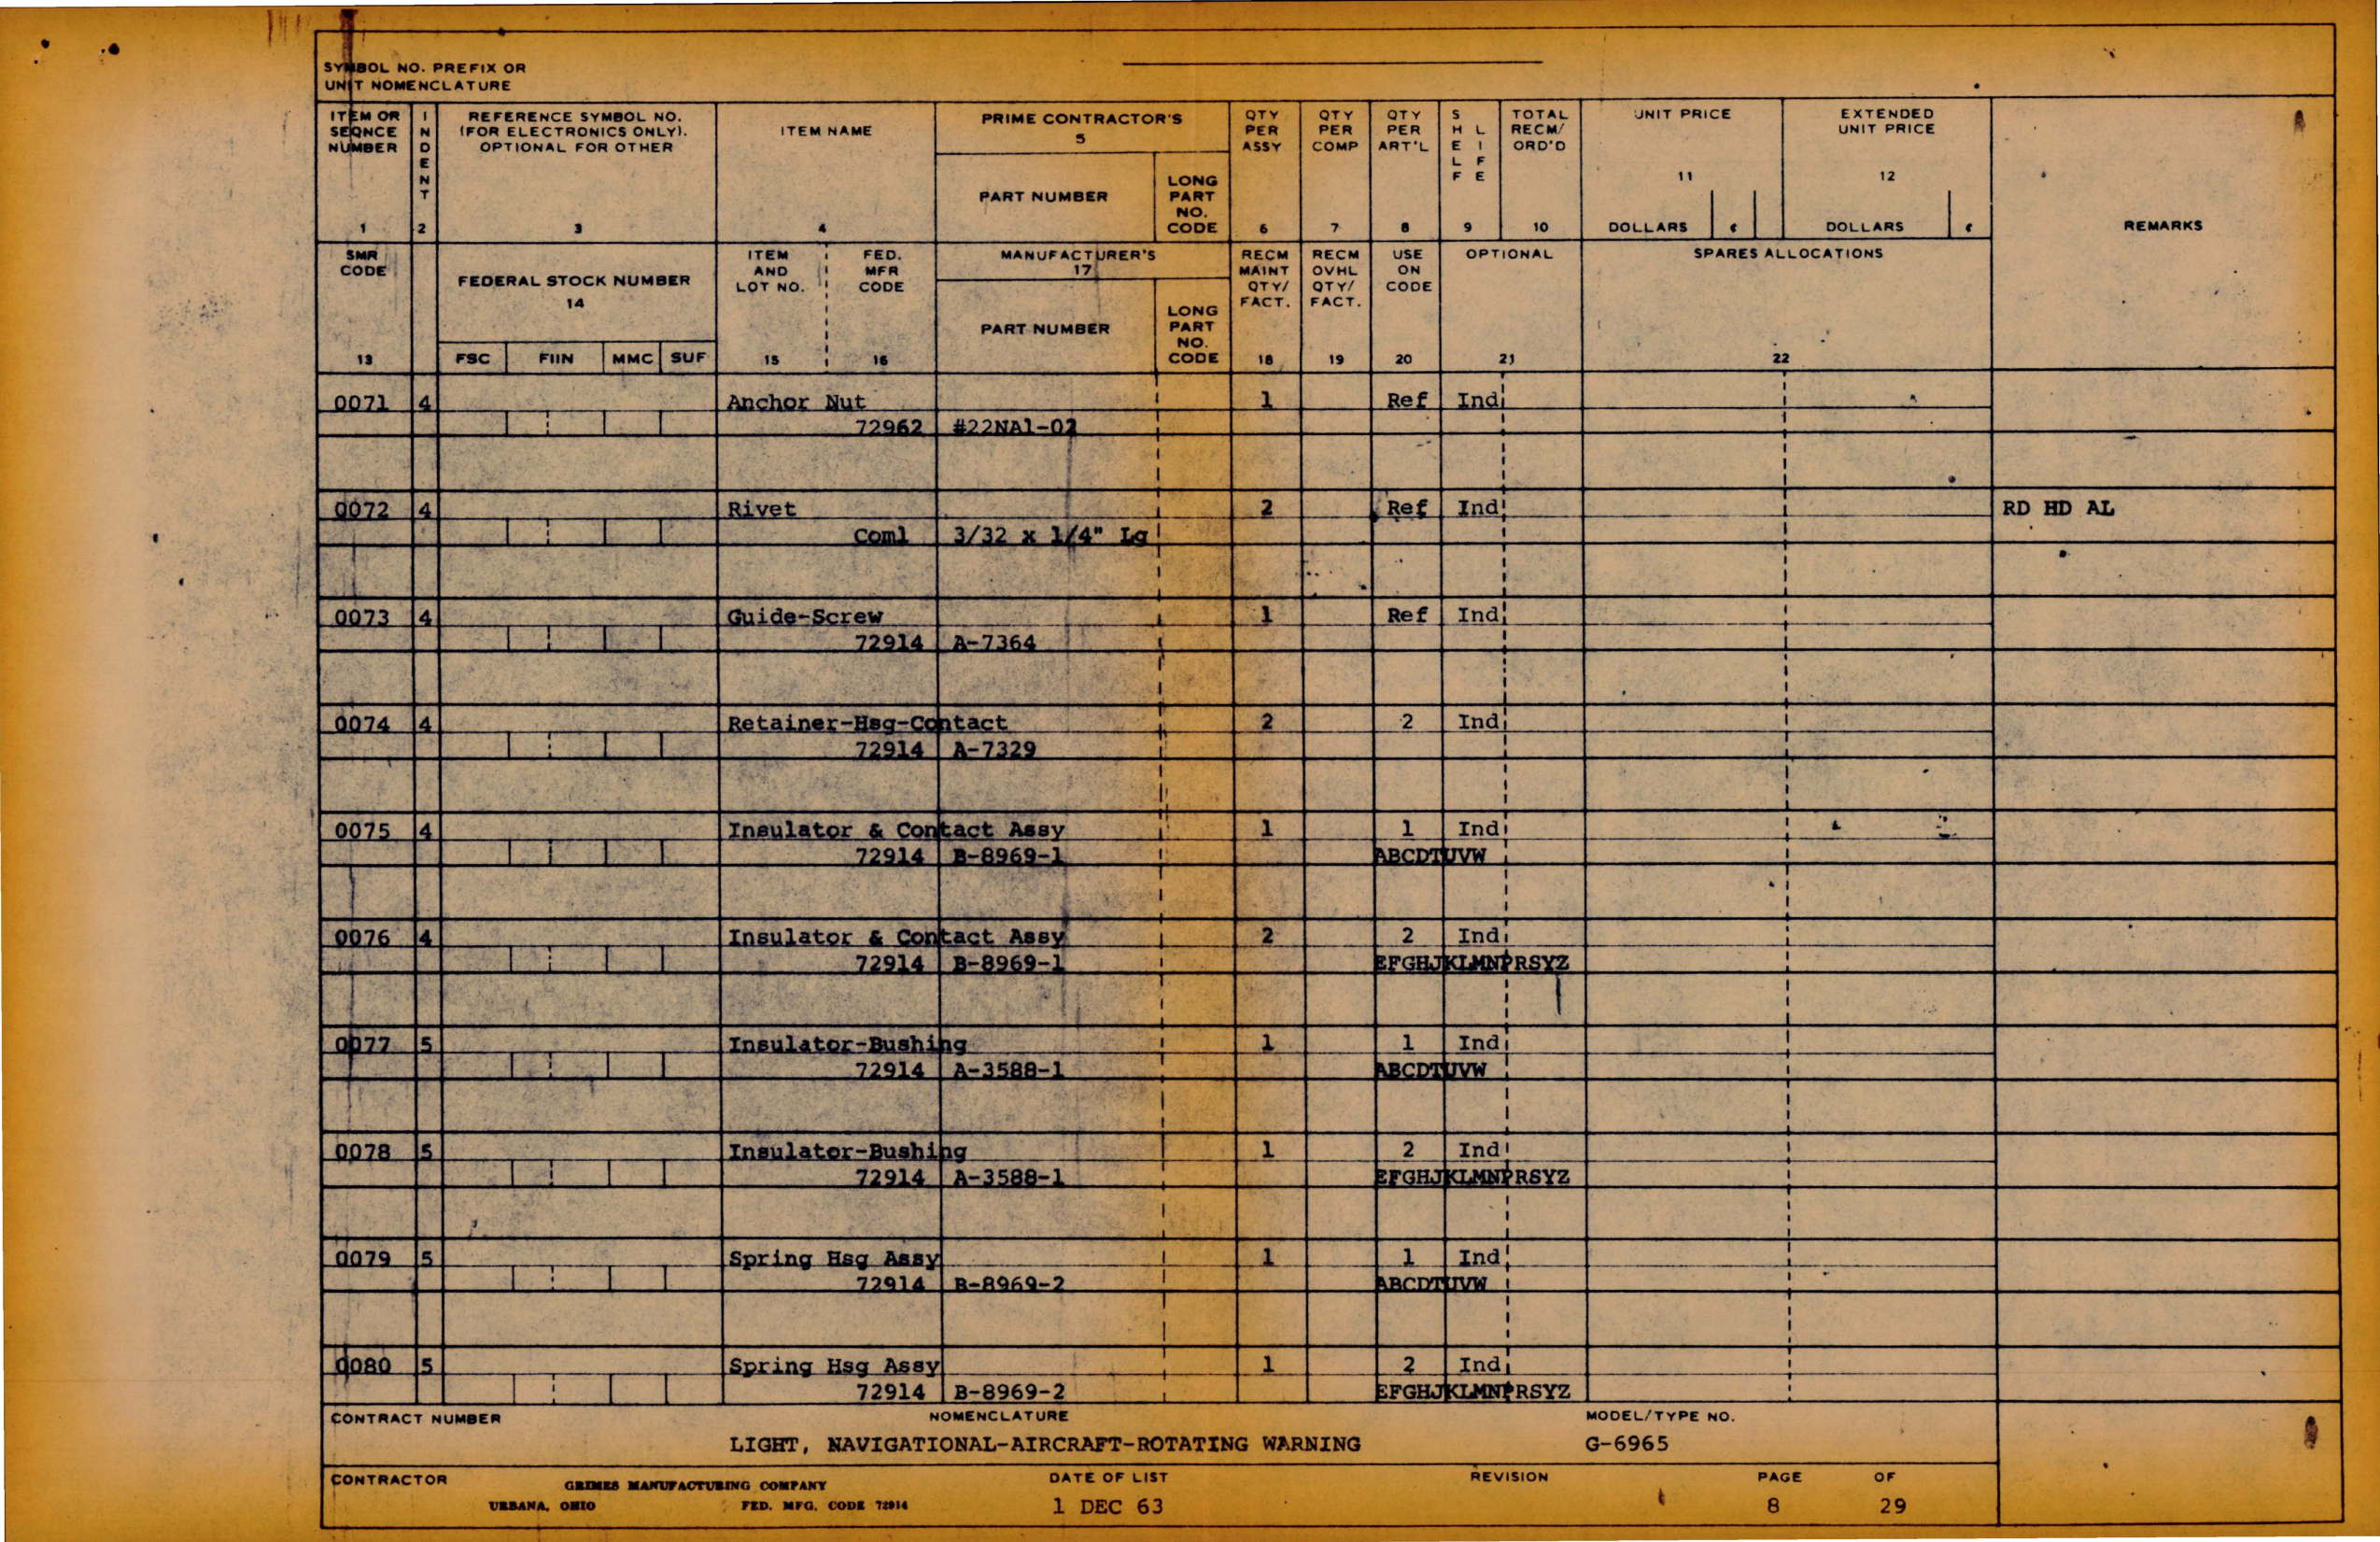 SYMBOL NO. PREFIX OR
UNIT NOMENCLATURE
ITEM OR SEQNCE NUMBER 1
INDENT 2
REFERENCE SYMBOL NO. (FOR ELECTRONICS ONLY). OPTIONAL FOR OTHER 3
ITEM NAME 4
PRIME CONTRACTOR'S 5
PART NUMBER
LONG PART NO. CODE
QTY PER ASSY 6
QTY PER COMP 7
QTY PER ART'L 8
SHELF LIFE 9
TOTAL RECM/ ORD'D 10
UNIT PRICE 11
DOLLARS ¢
EXTENDED UNIT PRICE 12
DOLLARS ¢
REMARKS
SMR CODE 13
FEDERAL STOCK NUMBER 14
FSC FIIN MMC SUF
ITEM AND LOT NO. 15
FED. MFR CODE 16
MANUFACTURER'S 17
PART NUMBER
LONG PART NO. CODE
RECM MAINT QTY/ FACT. 18
RECM OVHL QTY/ FACT. 19
USE ON CODE 20
OPTIONAL 21
SPARES ALLOCATIONS 22
0071 4 Anchor Nut 1 Ref Ind
72962 #22NA1-02
0072 4 Rivet 2 Ref Ind RD HD AL
Coml 3/32 x 1/4" Lg
0073 4 Guide-Screw 1 Ref Ind
72914 A-7364
0074 4 Retainer-Hsg-Contact 2 2 Ind
72914 A-7329
0075 4 Insulator & Contact Assy 1 1 Ind
72914 B-8969-1 ABCDTUVW
0076 4 Insulator & Contact Assy 2 2 Ind
72914 B-8969-1 EFGHJKLMNPRSYZ
0077 5 Insulator-Bushing 1 1 Ind
72914 A-3588-1 ABCDTUVW
0078 5 Insulator-Bushing 1 2 Ind
72914 A-3588-1 EFGHJKLMNPRSYZ
0079 5 Spring Hsg Assy 1 1 Ind
72914 B-8969-2 ABCDTUVW
0080 5 Spring Hsg Assy 1 2 Ind
72914 B-8969-2 EFGHJKLMNPRSYZ
CONTRACT NUMBER NOMENCLATURE MODEL/TYPE NO.
LIGHT, NAVIGATIONAL-AIRCRAFT-ROTATING WARNING G-6965
CONTRACTOR GRIMES MANUFACTURING COMPANY DATE OF LIST REVISION PAGE OF
URBANA, OHIO FED. MFG. CODE 72914 1 DEC 63 8 29